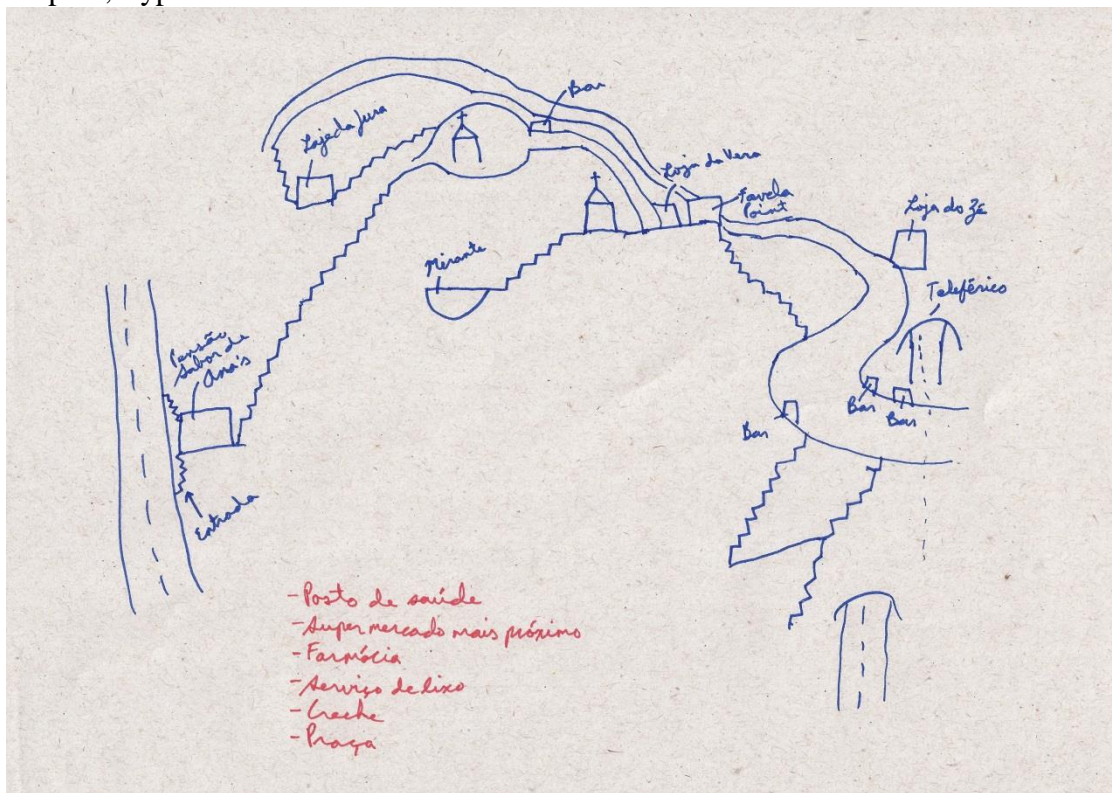 Bar
Laje da Jura
Loja da Vera
Favela
Point
Loja do Zé
Mirante
Teleférico
Pensão
Sabor de
Ana's
Bar
Bar
Bar
Entrada
- Posto de saúde
- Supermercado mais próximo
- Farmácia
- Serviço de lixo
- Creche
- Praça